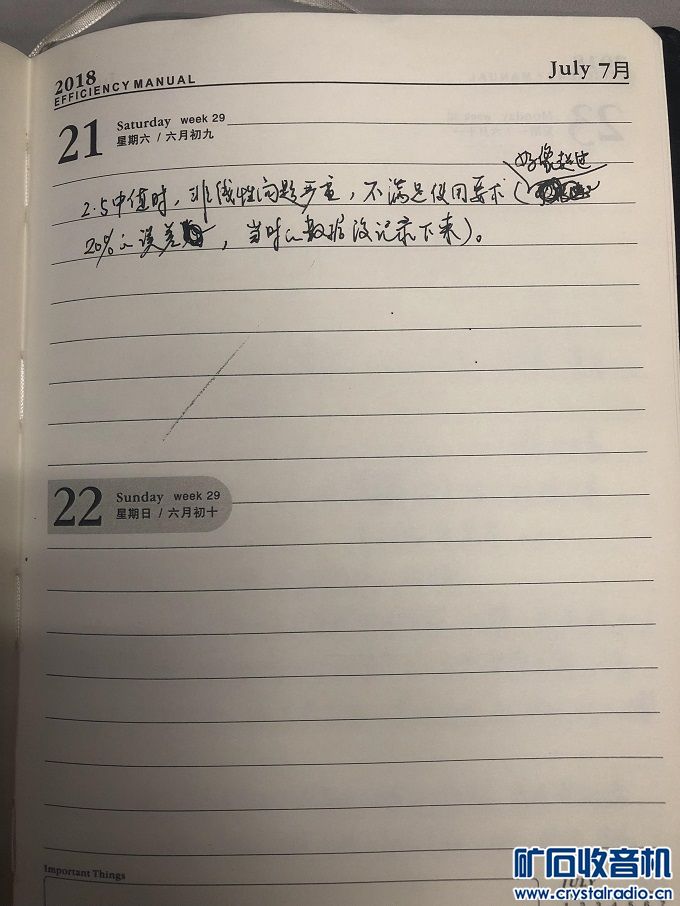 2018
EFFICIENCY MANUAL
July 7月
21
Saturday week 29
星期六 / 六月初九
好像超过
2.5中值时，非线性问题严重，不满足使用要求（
20%的误差，当时的数据没记录下来）。
22
Sunday week 29
星期日 / 六月初十
Important Things
JULY
矿石收音机
www.crystalradio.cn